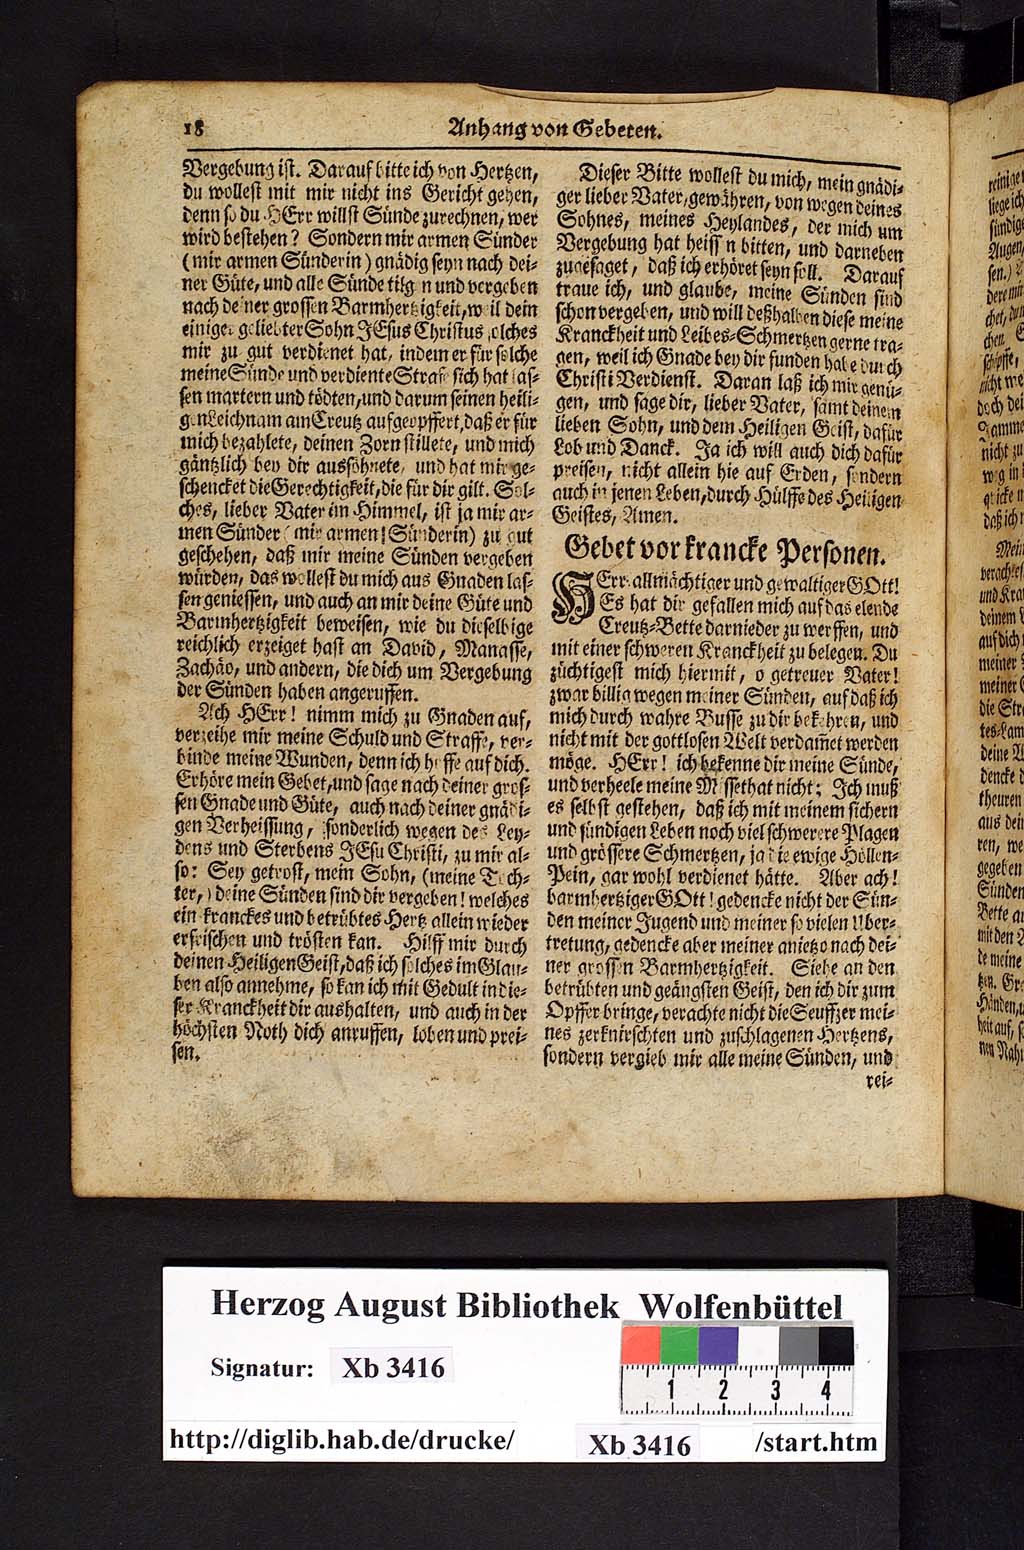 18
Anhang von Gebeten.
Vergebung ist. Darauf bitte ich von Hertzen,
du wollest mit mir nicht ins Gericht gehen,
denn so du HErr willst Sünde zurechnen, wer
wird bestehen? Sondern mir armen Sünder
(mir armen Sünderin) gnädig seyn nach dei-
ner Güte, und alle Sünde tilgen und vergeben
nach deiner grossen Barmhertzigkeit, weil dein
einiger geliebter Sohn JEsus Christus solches
mir zu gut verdienet hat, indem er für solche
meine Sünde und verdiente Strafe sich hat las-
sen martern und tödten, und darum seinen heili-
gen Leichnam am Creutz aufgeopffert, daß er für
mich bezahlete, deinen Zorn stillete, und mich
gäntzlich bey dir aussöhnete, und hat mir ge-
schencket die Gerechtigkeit, die für dir gilt. Sol-
ches, lieber Vater im Himmel, ist ja mir ar-
men Sünder (mir armen Sünderin) zu gut
geschehen, daß mir meine Sünden vergeben
würden, das wollest du mich aus Gnaden las-
sen geniessen, und auch an mir deine Güte und
Barmhertzigkeit beweisen, wie du dieselbige
reichlich erzeiget hast an David, Manasse,
Zachäo, und andern, die dich um Vergebung
der Sünden haben angeruffen.
Ach HErr! nimm mich zu Gnaden auf,
verzeihe mir meine Schuld und Straffe, ver-
binde meine Wunden, denn ich hoffe auf dich.
Erhöre mein Gebet, und sage nach deiner gros-
sen Gnade und Güte, auch nach deiner gnädi-
gen Verheissung, sonderlich wegen des Ley-
dens und Sterbens JEsu Christi, zu mir al-
so: Sey getrost, mein Sohn, (meine Toch-
ter,) deine Sünden sind dir vergeben! welches
ein kranckes und betrübtes Hertz allein wieder
erfrischen und trösten kan. Hilff mir durch
deinen Heiligen Geist, daß ich solches im Glau-
ben also annehme, so kan ich mit Gedult in die-
ser Kranckheit dir aushalten, und auch in der
höchsten Noth dich anruffen, loben und prei-
sen.
Dieser Bitte wollest du mich, mein gnädi-
ger lieber Vater, gewähren, von wegen deines
Sohnes, meines Heylandes, der mich um
Vergebung hat heissen bitten, und darneben
zugesaget, daß ich erhöret seyn soll. Darauf
traue ich, und glaube, meine Sünden sind
schon vergeben, und will deßhalben diese meine
Kranckheit und Leibes-Schmertzen gerne tra-
gen, weil ich Gnade bey dir funden habe durch
Christi Verdienst. Daran laß ich mir genü-
gen, und sage dir, lieber Vater, samt deinem
lieben Sohn, und dem Heiligen Geist, dafür
Lob und Danck. Ja ich will auch dich dafür
preisen, nicht allein hie auf Erden, sondern
auch in jenen Leben, durch Hülffe des Heiligen
Geistes, Amen.
Gebet vor krancke Personen.
HErr allmächtiger und gewaltiger GOtt!
Es hat dir gefallen mich auf das elende
Creutz-Bette darnieder zu werffen, und
mit einer schweren Kranckheit zu belegen. Du
züchtigest mich hiermit, o getreuer Vater!
zwar billig wegen meiner Sünden, auf daß ich
mich durch wahre Busse zu dir bekehren, und
nicht mit der gottlosen Welt verdam̃et werden
möge. HErr! ich bekenne dir meine Sünde,
und verheele meine Missethat nicht; Ich muß
es selbst gestehen, daß ich mit meinem sichern
und sündigen Leben noch viel schwerere Plagen
und grössere Schmertzen, ja die ewige Höllen-
Pein, gar wohl verdienet hätte. Aber ach!
barmhertziger GOtt! gedencke nicht der Sün-
den meiner Jugend und meiner so vielen Uber-
tretung, gedencke aber meiner anietzo nach dei-
ner grossen Barmhertzigkeit. Siehe an den
betrübten und geängsten Geist, den ich dir zum
Opffer bringe, verachte nicht die Seuffzer mei-
nes zerknirschten und zuschlagenen Hertzens,
sondern vergieb mir alle meine Sünden, und
rei-
Herzog August Bibliothek Wolfenbüttel
Signatur: Xb 3416
1 2 3 4
http://diglib.hab.de/drucke/ Xb 3416 /start.htm